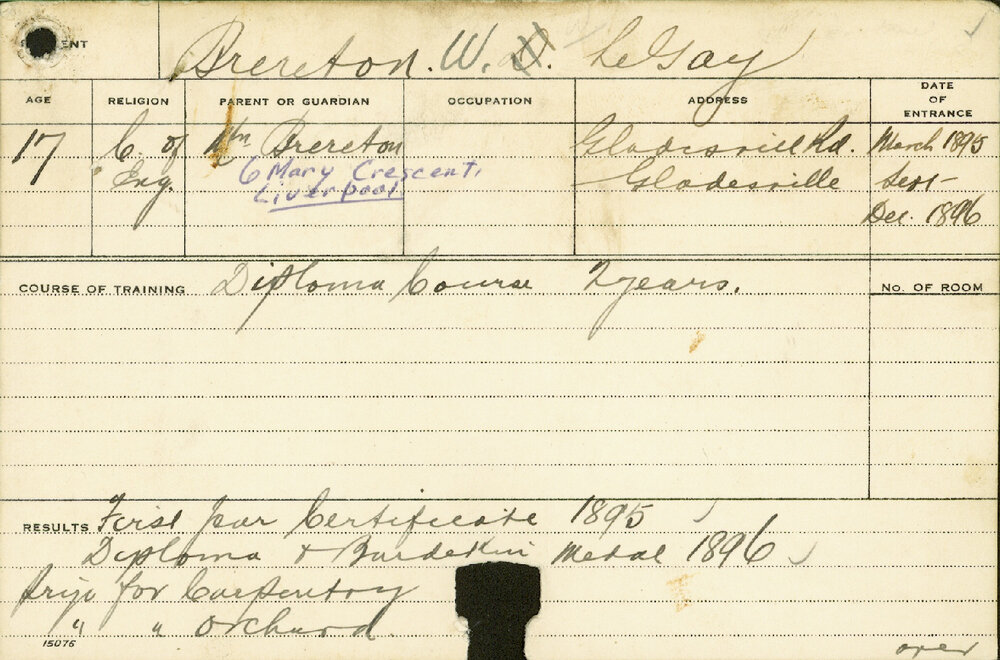 Brereton. W. Le Gay
AGE RELIGION PARENT OR GUARDIAN OCCUPATION ADDRESS DATE OF ENTRANCE
17 C. of Wm Brereton Gladesvill Rd. March 1895
Eng. 6 Mary Crescent, Gladesville Sept -
Liverpool Dec. 1896
COURSE OF TRAINING Diploma Course 2 years. No. OF ROOM
RESULTS First year Certificate 1895
Diploma & Burdekin Medal 1896
Prize for Carpentry
" " Orchard.
15076
over